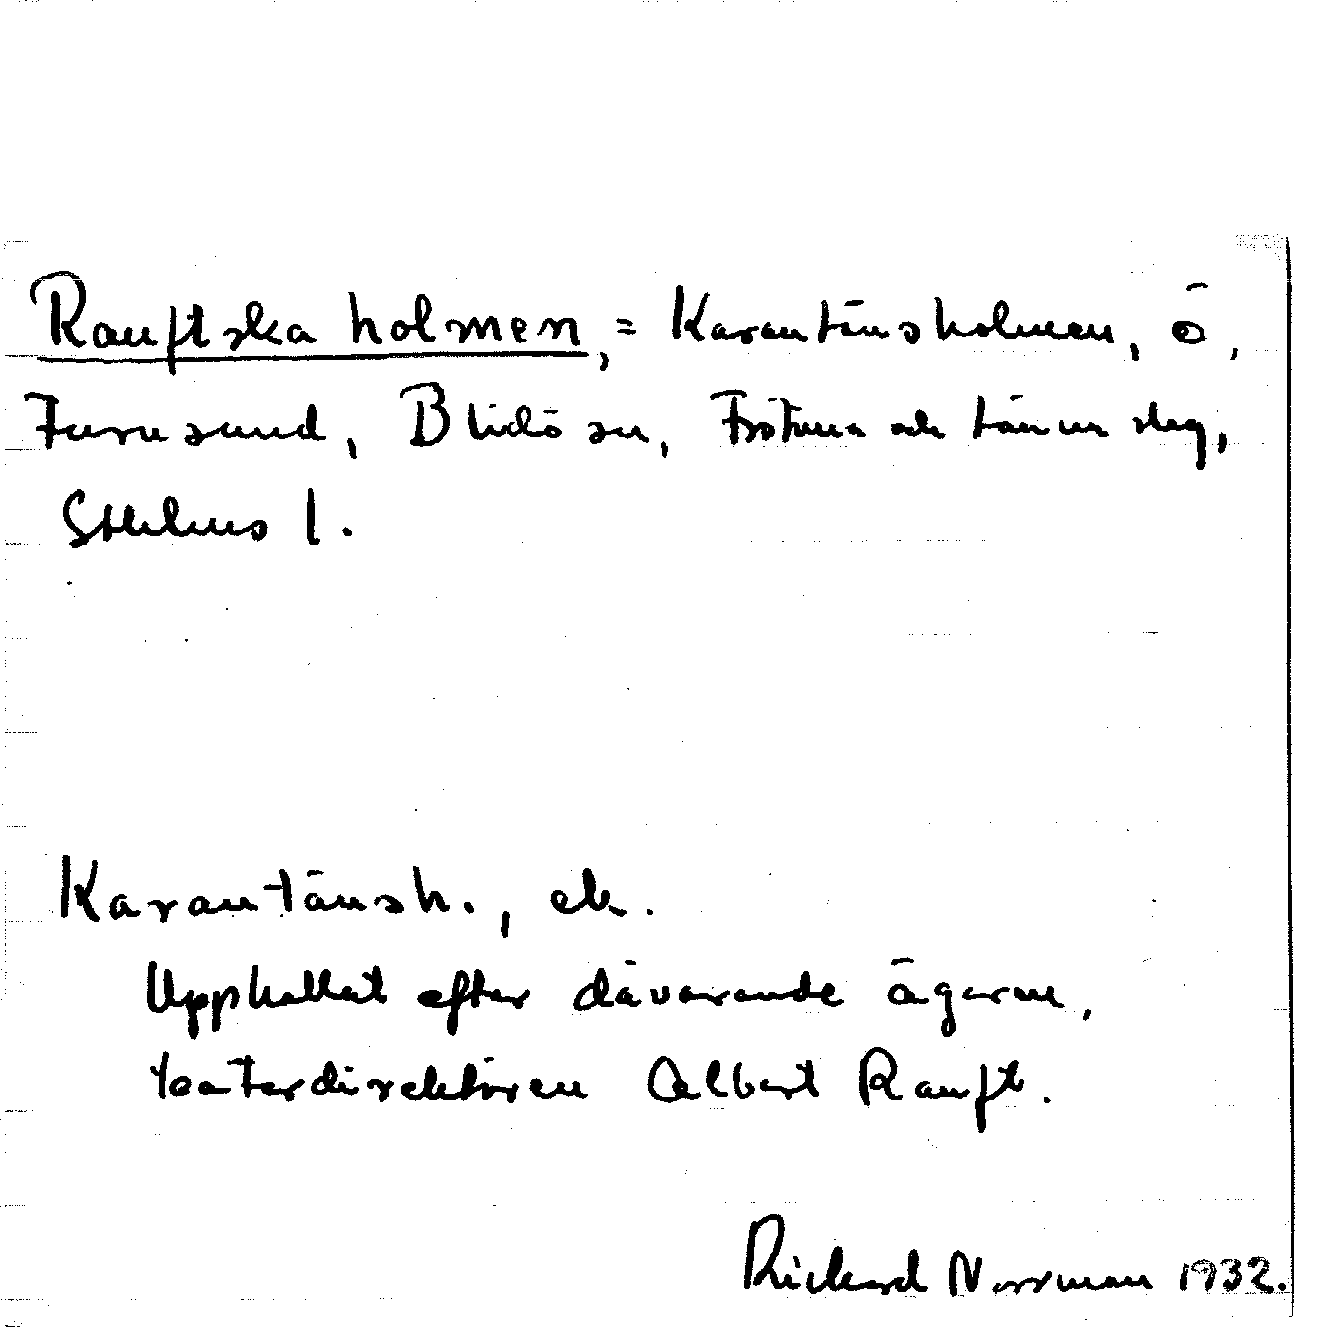 Ranftska holmen, = Karantänsholmen, ö,
Furusund, Blidö sn, Frötuna och Länna skg,
Sthlms l.
Karantänsh., ek.
Uppkallat efter dåvarande ägaren,
teaterdirektören Albert Ranft.
Rickard Norrman 1932.